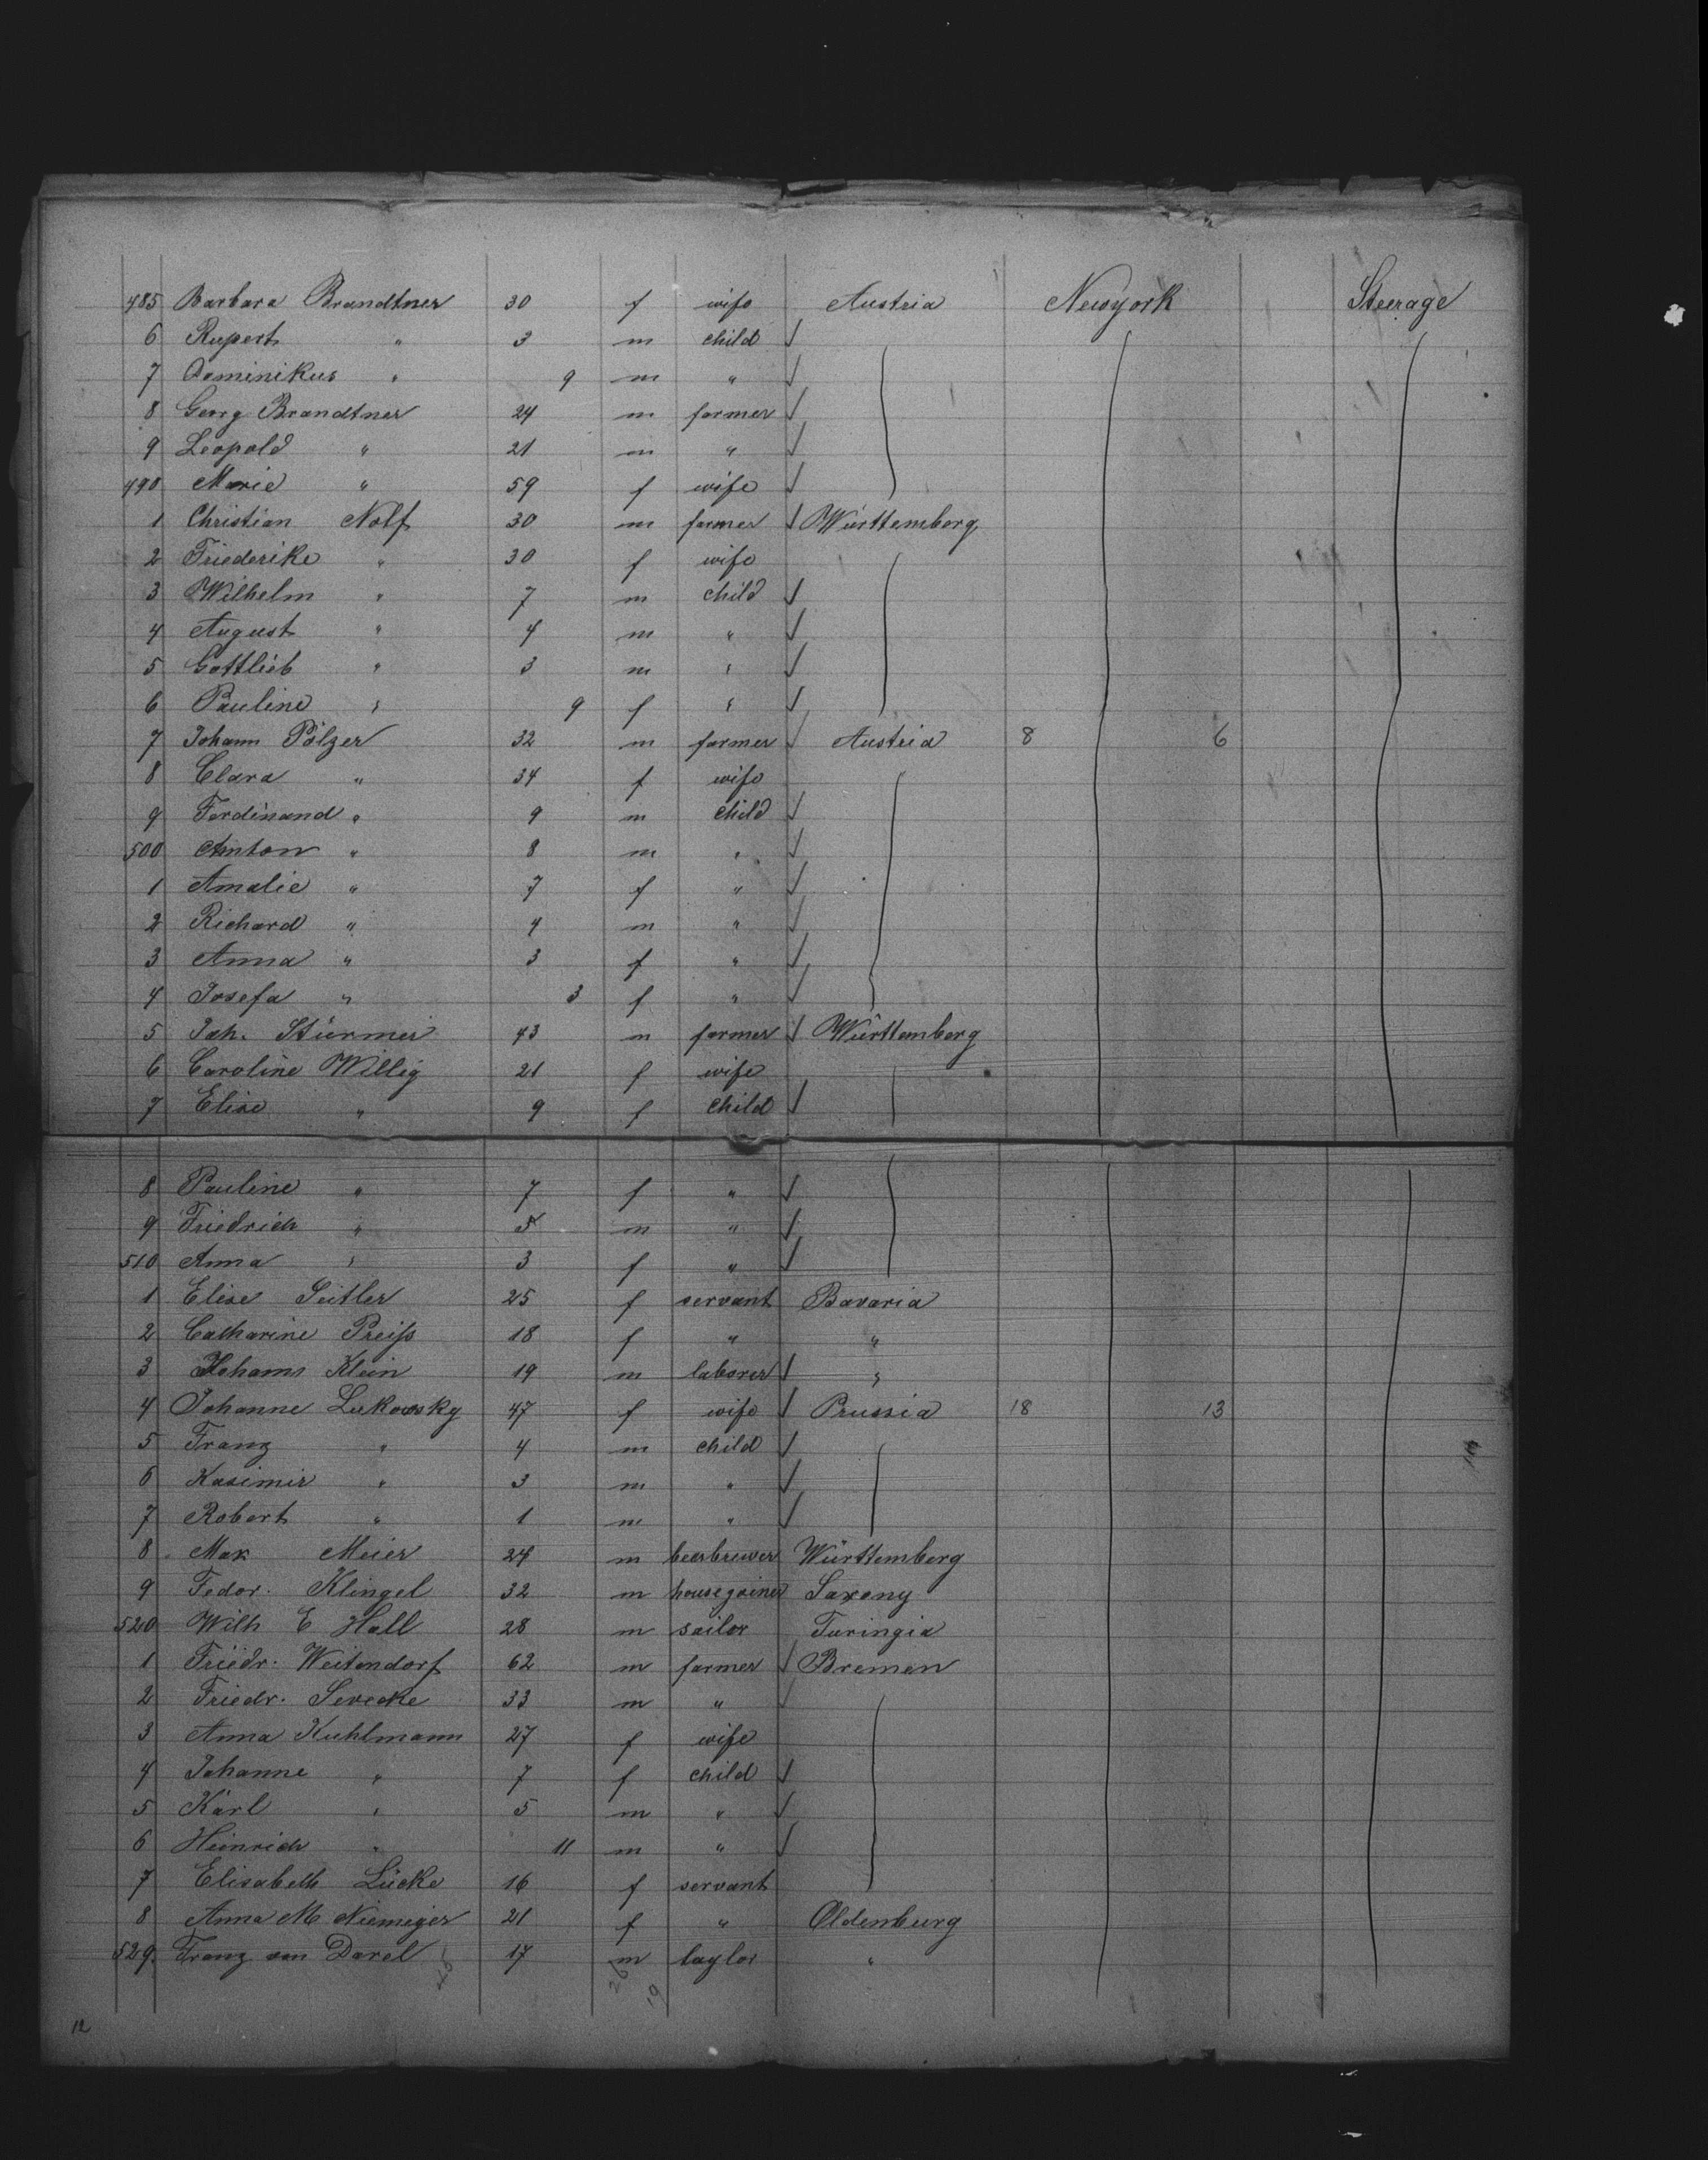 485 Barbara Brandtner 30 f wife Austria Newyork Steerage
6 Rupert " 3 m child
7 Dominikus " 9 m "
8 Georg Brandtner 24 m farmer
9 Leopold " 21 m "
490 Marie " 59 f wife
1 Christian Nolf 30 m farmer Württemberg
2 Friederike " 30 f wife
3 Wilhelm " 7 m child
4 August " 4 m "
5 Gottlieb " 3 m "
6 Pauline " 9 f "
7 Johann Pölzer 32 m farmer Austria 8 6
8 Clara " 34 f wife
9 Ferdinand " 9 m child
500 Anton " 8 m "
1 Amalie " 7 f "
2 Richard " 4 m "
3 Anna " 3 f "
4 Josefa " 3 f "
5 Joh. Stürmer 43 m farmer Württemberg
6 Caroline Willig 21 f wife
7 Elise " 9 f child
8 Pauline " 7 f "
9 Friedrich " 5 m "
510 Anna " 3 f "
1 Elise Seitler 25 f servant Bavaria
2 Catharine Preiß 18 f " "
3 Johann Klein 19 m laborer "
4 Johanne Lukowsky 47 f wife Prussia 18 13
5 Franz " 4 m child
6 Kasimir " 3 m "
7 Robert " 1 m "
8 Max Meier 24 m beerbrewer Württemberg
9 Fedor. Klingel 32 m housejoiner Saxony
520 Wilh E Hall 28 m sailor Turingia
1 Friedr. Weitendorf 62 m farmer Bremen
2 Friedr. Sevecke 33 m "
3 Anna Kuhlmann 27 f wife
4 Johanne " 7 f child
5 Karl " 5 m "
6 Heinrich " 11 m "
7 Elisabeth Lücke 16 f servant
8 Anna M Niemeyer 21 f " Oldenburg
529. Franz von Darel 17 m taylor "
26 19
12